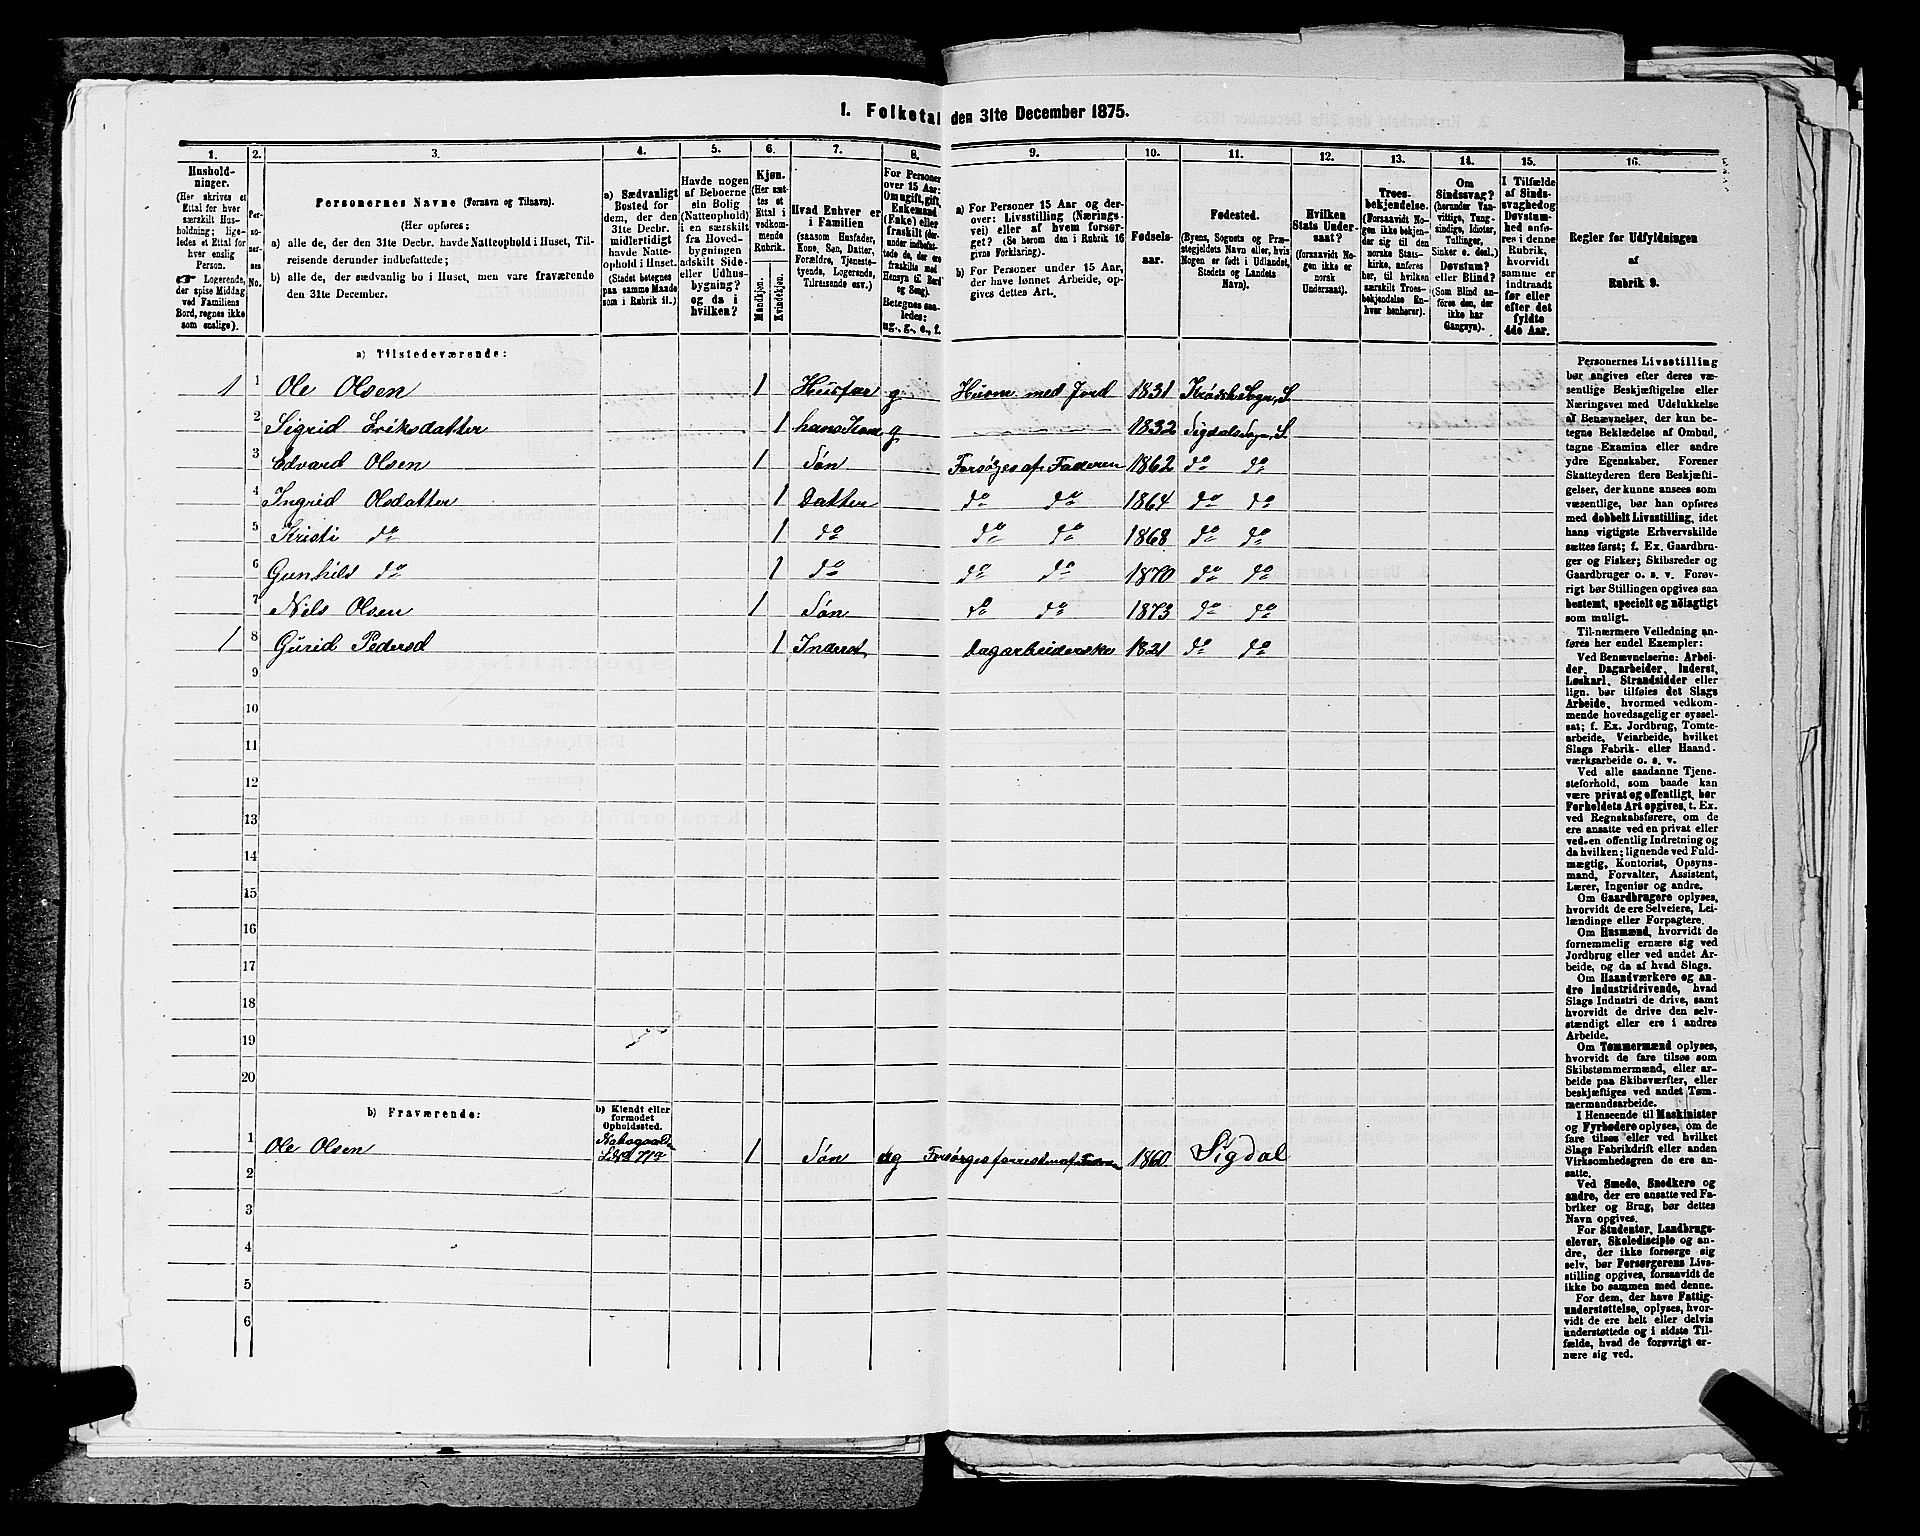 1. Folketal den 31te December 1875.
1. 2. 3. 4. 5. 6. 7. 8. 9. 10. 11. 12. 13. 14. 15. 16.
Husholdninger.
(Her skrives et
Ettal for hver
særskilt Husholdning;
ligeledes et Ettal for
hver enslig
Person.
☛ Logerende,
der spise Middag
ved Familiens
Bord, regnes ikke
som enslige).
Personernes
No.
Personernes Navne (Fornavn og Tilnavn).
(Her opføres:
a) alle de, der den 31te Decbr. havde Natteophold i Huset, Tilreisende derunder indbefattede;
b) alle de, der sædvanlig bo i Huset, men vare fraværende
den 31te December.
a) Sædvanligt
Bosted for
dem, der den
31te Decbr.
midlertidigt
havde Natteophold i Huset.
(Stedet betegnes
paa samme Maade
som i Rubrik 11.)
Havde nogen
af Beboerne
sin Bolig
(Natteophold)
i en særskilt
fra Hovedbygningen
adskilt Side- eller Udhusbygning?
og da i
hvilken?
Kjøn.
(Her sættes et
Ettal i
vedkommende
Rubrik.
Mandkjøn.
Kvindekjøn.
Hvad Enhver er
i Familien
(saasom Husfader,
Kone, Søn, Datter,
Forældre, Tjenestetyende, Logerende,
Tilreisende osv.)
For Personer
over 15 Aar:
Om ugift, gift,
Enkemand
(Enke) eller
fraskilt (derunder indbefattede de, der ere
fraskilte med
Hensyn til Bord
og Seng).
Betegnes saaledes:
ug., g., e., f.
a) For Personer 15 Aar og derover: Livsstilling (Næringsvei) eller af hvem forsørget? (Se herom den i Rubrik 16
givne Forklaring).
b) For Personer under 15 Aar,
der have lønnet Arbeide, opgives dettes Art.
Fødselsaar.
Fødested.
(Byens, Sognets og Præstegjeldets Navn eller, hvis
Nogen er født i Udlandet,
Stedets og Landets
Navn).
Hvilken
Stats Undersaat?
(forsaavidt Nogen ikke er
norsk
Undersaat).
Troesbekjendelse.
(Forsaavidt Nogen ikke bekjender sig til den
norske Statskirke, anføres
her, til hvilken
særskilt Troesbekjendelse Enhver henhører).
Om
Sindssvag?
(herunder Vanvittige, Tungsindige, Idioter,
Tullinger,
Sinker o. desl.).
Døvstum?
eller Blind?
(Som Blind anføres den, der
ikke har
Gangsyn).
I Tilfælde
af Sindssvaghed og
Døvstumhed anføres i denne
Rubrik,
hvorvidt
samme er
indtraadt
før eller
efter det
fyldte
4de Aar.
Regler for Udfyldningen
af
Rubrik 9.
a) Tilstedeværende:
1 1 Ole Olsen 1 Husfar g Husm med Jord 1831 Krødsh Sogn, S.
2 Sigrid Eriksdatter 1 hans Kone g 1832 Sigdals Sogn, S.
3 Edvard Olsen 1 Søn Forsørges af Faderen 1862 do do
4 Ingrid Olsdatter 1 Datter do do 1864 do do
5 Kristi do 1 do do do 1868 do do
6 Gunhild do 1 do do do 1870 do do
7 Nils Olsen 1 Søn do do 1873 do do
1 8 Gurid Pedersd 1 Inderst Dagarbeiderske 1821 do do
9
10
11
12
13
14
15
16
17
18
19
20
b) Fraværende:
b) Kjendt eller
formodet
Opholdssted.
1 Ole Olsen 1 Søn ug 1860 Sigdal
2
3
4
5
6
Personernes Livsstilling
bør angives efter deres væsentlige Beskjæftigelse eller
Næringsvei med Udelukkelse
af Benævnelser, der kun betegne Beklædelse af Ombud,
tagne Examina eller andre
ydre Egenskaber. Forener
Skatteyderen flere Beskjæftigelser, der kunne ansees som
væsentlige, bør han opføres
med dobbelt Livsstilling, idet
hans vigtigste Erhvervskilde
sættes først; f. Ex. Gaardbruger og Fisker; Skibsreder og
Gaardbruger o. s. v. Forøvrigt bør Stillingen opgives saa
bestemt, specielt og nøiagtigt
som muligt.
Til nærmere Veiledning anføres her endel Exempler:
Ved Benævnelserne: Arbeider, Dagarbeider, Inderst,
Løskarl, Strandsidder eller
lign. bør tilføies det Slags
Arbeide, hvormed vedkommende hovedsagelig er sysselsat; f. Ex. Jordbrug, Tomtearbeide, Veiarbeide, hvilket
Slags Fabrik- eller Haandværksarbeide o. s. v.
Ved alle saadanne Tjenesteforhold, som baade kan
være privat og offentligt, bør
Forholdets Art opgives, t. Ex.
ved Regnskabsførere, om de
ere ansatte ved en privat eller
ved en offentlig Indretning og
da hvilken; lignende ved Fuldmægtig, Kontorist, Opsynsmand, Forvalter, Assistent,
Lærer, Ingeniør og andre.
Om Gaardbrugere oplyses,
hvorvidt de ere Selveiere, Leilændinge eller Forpagtere.
Om Husmænd, hvorvidt de
fornemmelig ernære sig ved
Jordbrug eller ved andet Arbeide, og da af hvad Slags.
Om Haandværkere og andre Industridrivende, hvad
Slags Industri de drive, samt
hvorvidt de drive den selvstændigt eller ere i andres
Arbeide.
Om Tømmermænd oplyses,
hvorvidt de fare tilsøs som
Skibstømmermænd, eller arbeide paa Skibsværfter, eller
beskjæftiges ved andet Tømmermandsarbeide.
I Henseende til Maskinister
og Fyrbødere oplyses, om de
fare tilsøs eller ved hvilket
Slags Fabrikdrift eller anden
Virksomhedsgren de ere ansatte.
Ved Smede, Snedkere og
andre, der ere ansatte ved Fabriker og Brug, bør dettes
Navn opgives.
For Studenter, Landbrugselever, Skoledisciple og andre, der ikke forsørge sig
selv, bør Forsørgerens Livsstilling opgives, forsaavidt de
ikke bo sammen med denne.
For dem, der have Fattigunderstøttelse, oplyses, hvorvidt de ere helt eller delvis
understøttede og i sidste Tilfælde, hvad de forøvrigt ernære sig ved.